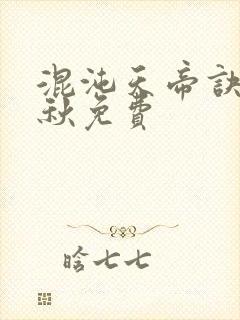 混沌天帝訣
秋免費
晗七七